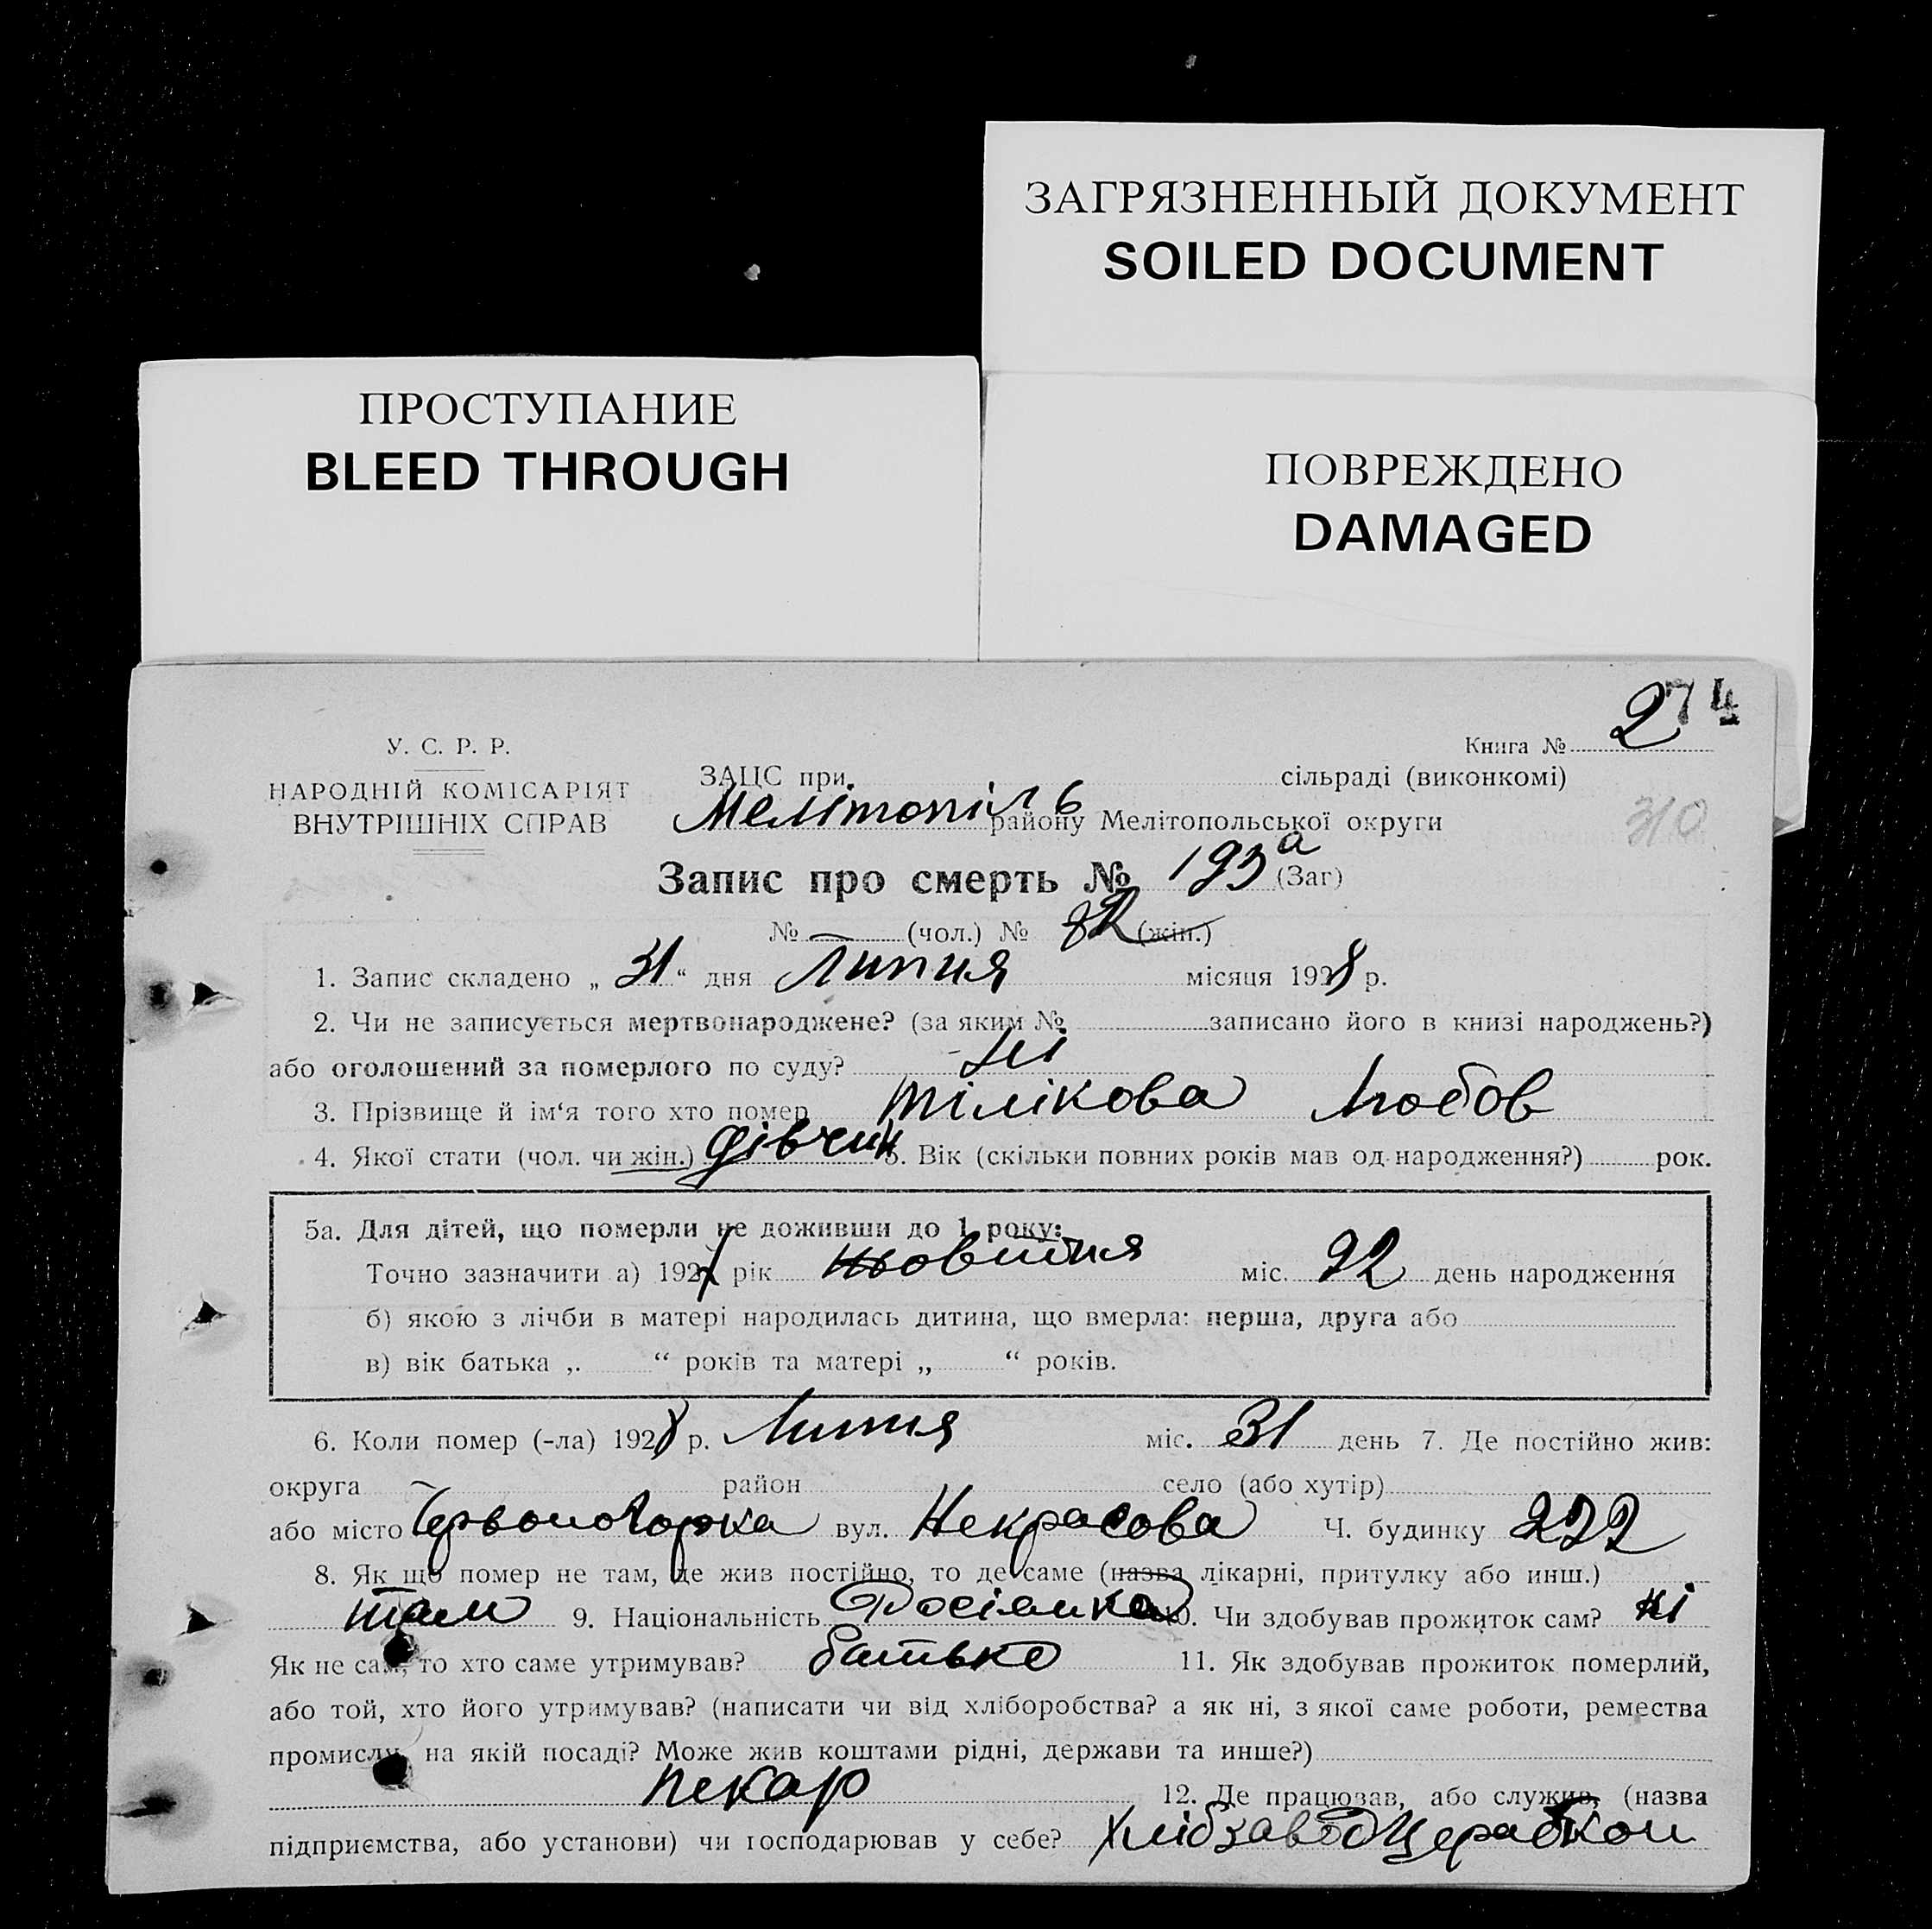 ЗАГРЯЗНЕННЫЙ ДОКУМЕНТ
SOILED DOCUMENT
ПРОСТУПАНИЕ
BLEED THROUGH
ПОВРЕЖДЕНО
DAMAGED
274
У. С. Р. Р.
Книга №
НАРОДНІЙ КОМІСАРІЯТ
ВНУТРІШНІХ СПРАВ
ЗАЦС при сільраді (виконкомі)
310
Мелітопіль району Мелітопольської округи
Запис про смерть № 193а (Заг)
№ — (чол.) № (жін.)
1. Запис складено „ 31 “ дня Липня місяця 1928 р.
2. Чи не записується мертвонароджене? (за яким № записано його в книзі народжень?)
або оголошений за померлого по суду? Ні
3. Прізвище й ім‘я того хто помер Тілікова Любов
4. Якої стати (чол. чи жін.) дівчин 5. Вік (скільки повних років мав од народження?) рок.
5а. Для дітей, що померли не доживши до 1 року:
Точно зазначити а) 1927 рік жовтня міс. 22 день народження
б) якою з лічби в матері народилась дитина, що вмерла: перша, друга або
в) вік батька „ “ років та матері „ “ років.
6. Коли помер (-ла) 1928 р. Липня міс. 31 день 7. Де постійно жив:
округа район село (або хутір)
або місто Червоногорка вул. Некрасова Ч. будинку 222
8. Як що помер не там, де жив постійно, то де саме (назва лікарні, притулку або инш.)
там 9. Національність Росіянка 10. Чи здобував прожиток сам? ні
Як не сам, то хто саме утримував? батько 11. Як здобував прожиток померлий,
або той, хто його утримував? (написати чи від хліборобства? а як ні, з якої саме роботи, ремества
промислу, на якій посаді? Може жив коштами рідні, держави та инше?)
пекар 12. Де працював, або служив, (назва
підприємства, або установи) чи господарював у себе? Хлібзавод Церабкоп